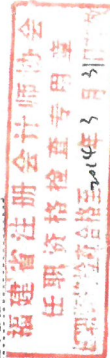 福建省注册会计师协会
任职资格检查专用章
检查合格至2014年3月31日